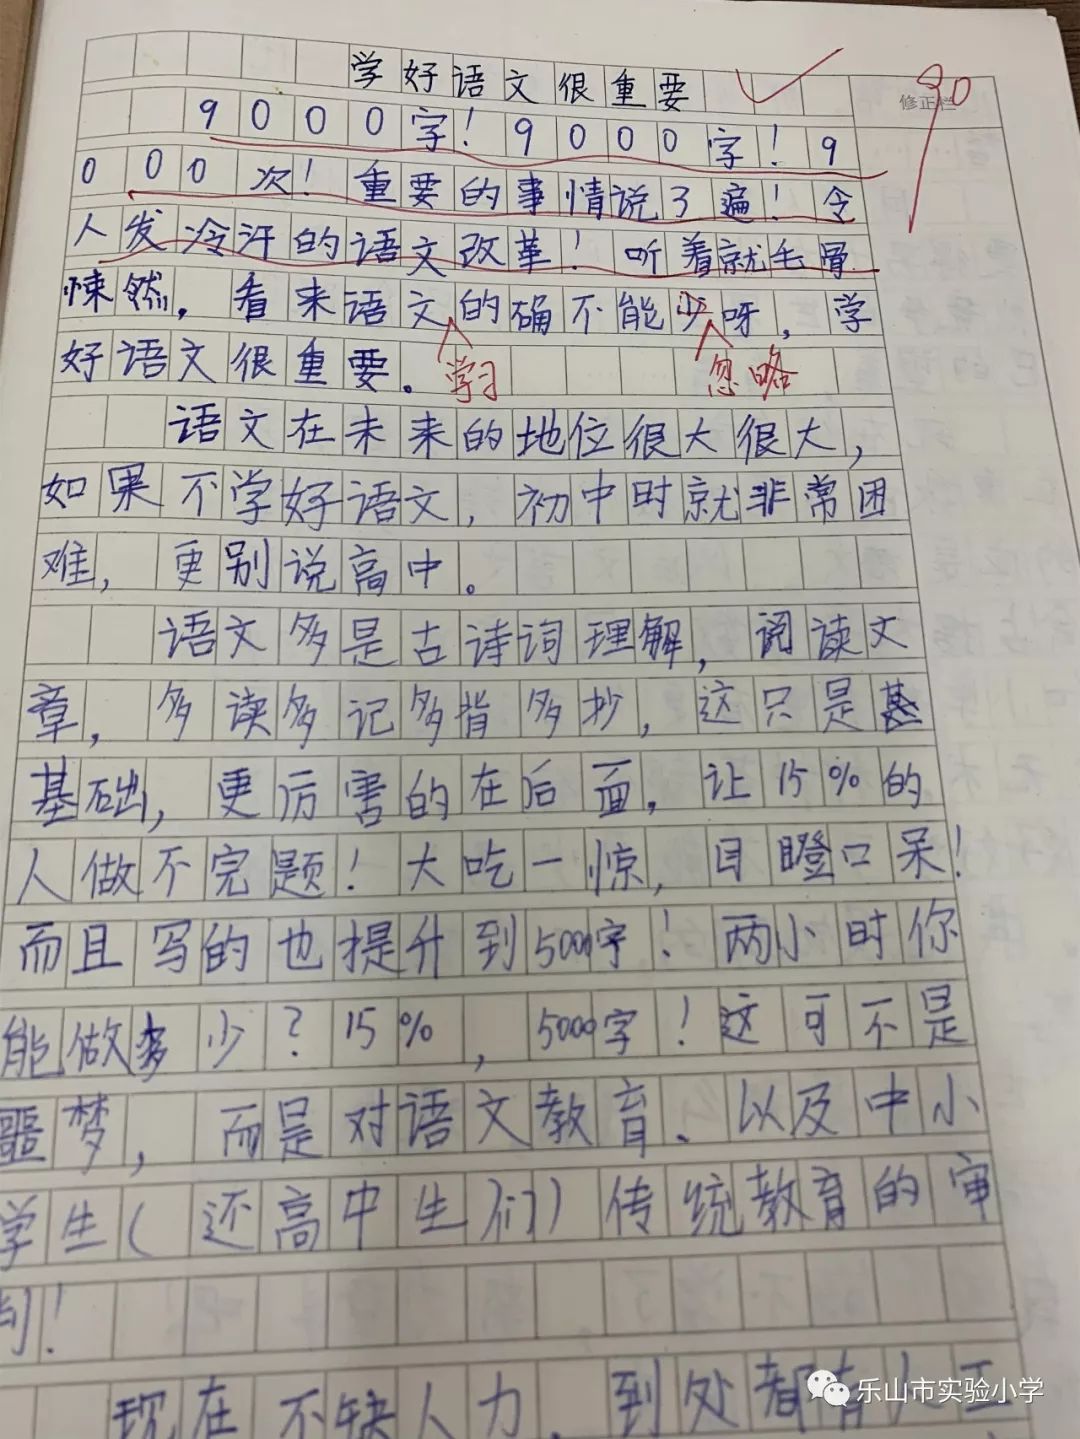 学好语文很重要
90
修正栏
9000字！9000字！9
000次！重要的事情说了遍！令
人发冷汗的语文改革！听着就毛骨
悚然，看来语文的确不能少呀，学
学习
忽略
好语文很重要。
语文在未来的地位很大很大，
如果不学好语文，初中时就非常困
难，更别说高中。
语文多是古诗词理解，阅读文
章，多读多记多背多抄，这只是
基础，更厉害的在后面，让15%的
人做不完题！大吃一惊，目瞪口呆！
而且写的也提升到5000字！两小时你
能做多少？15%，5000字！这可不是
噩梦，而是对语文教育、以及中小
学生（还高中生们）传统教育的审
判！
现在不缺人力，到处都有人工
乐山市实验小学